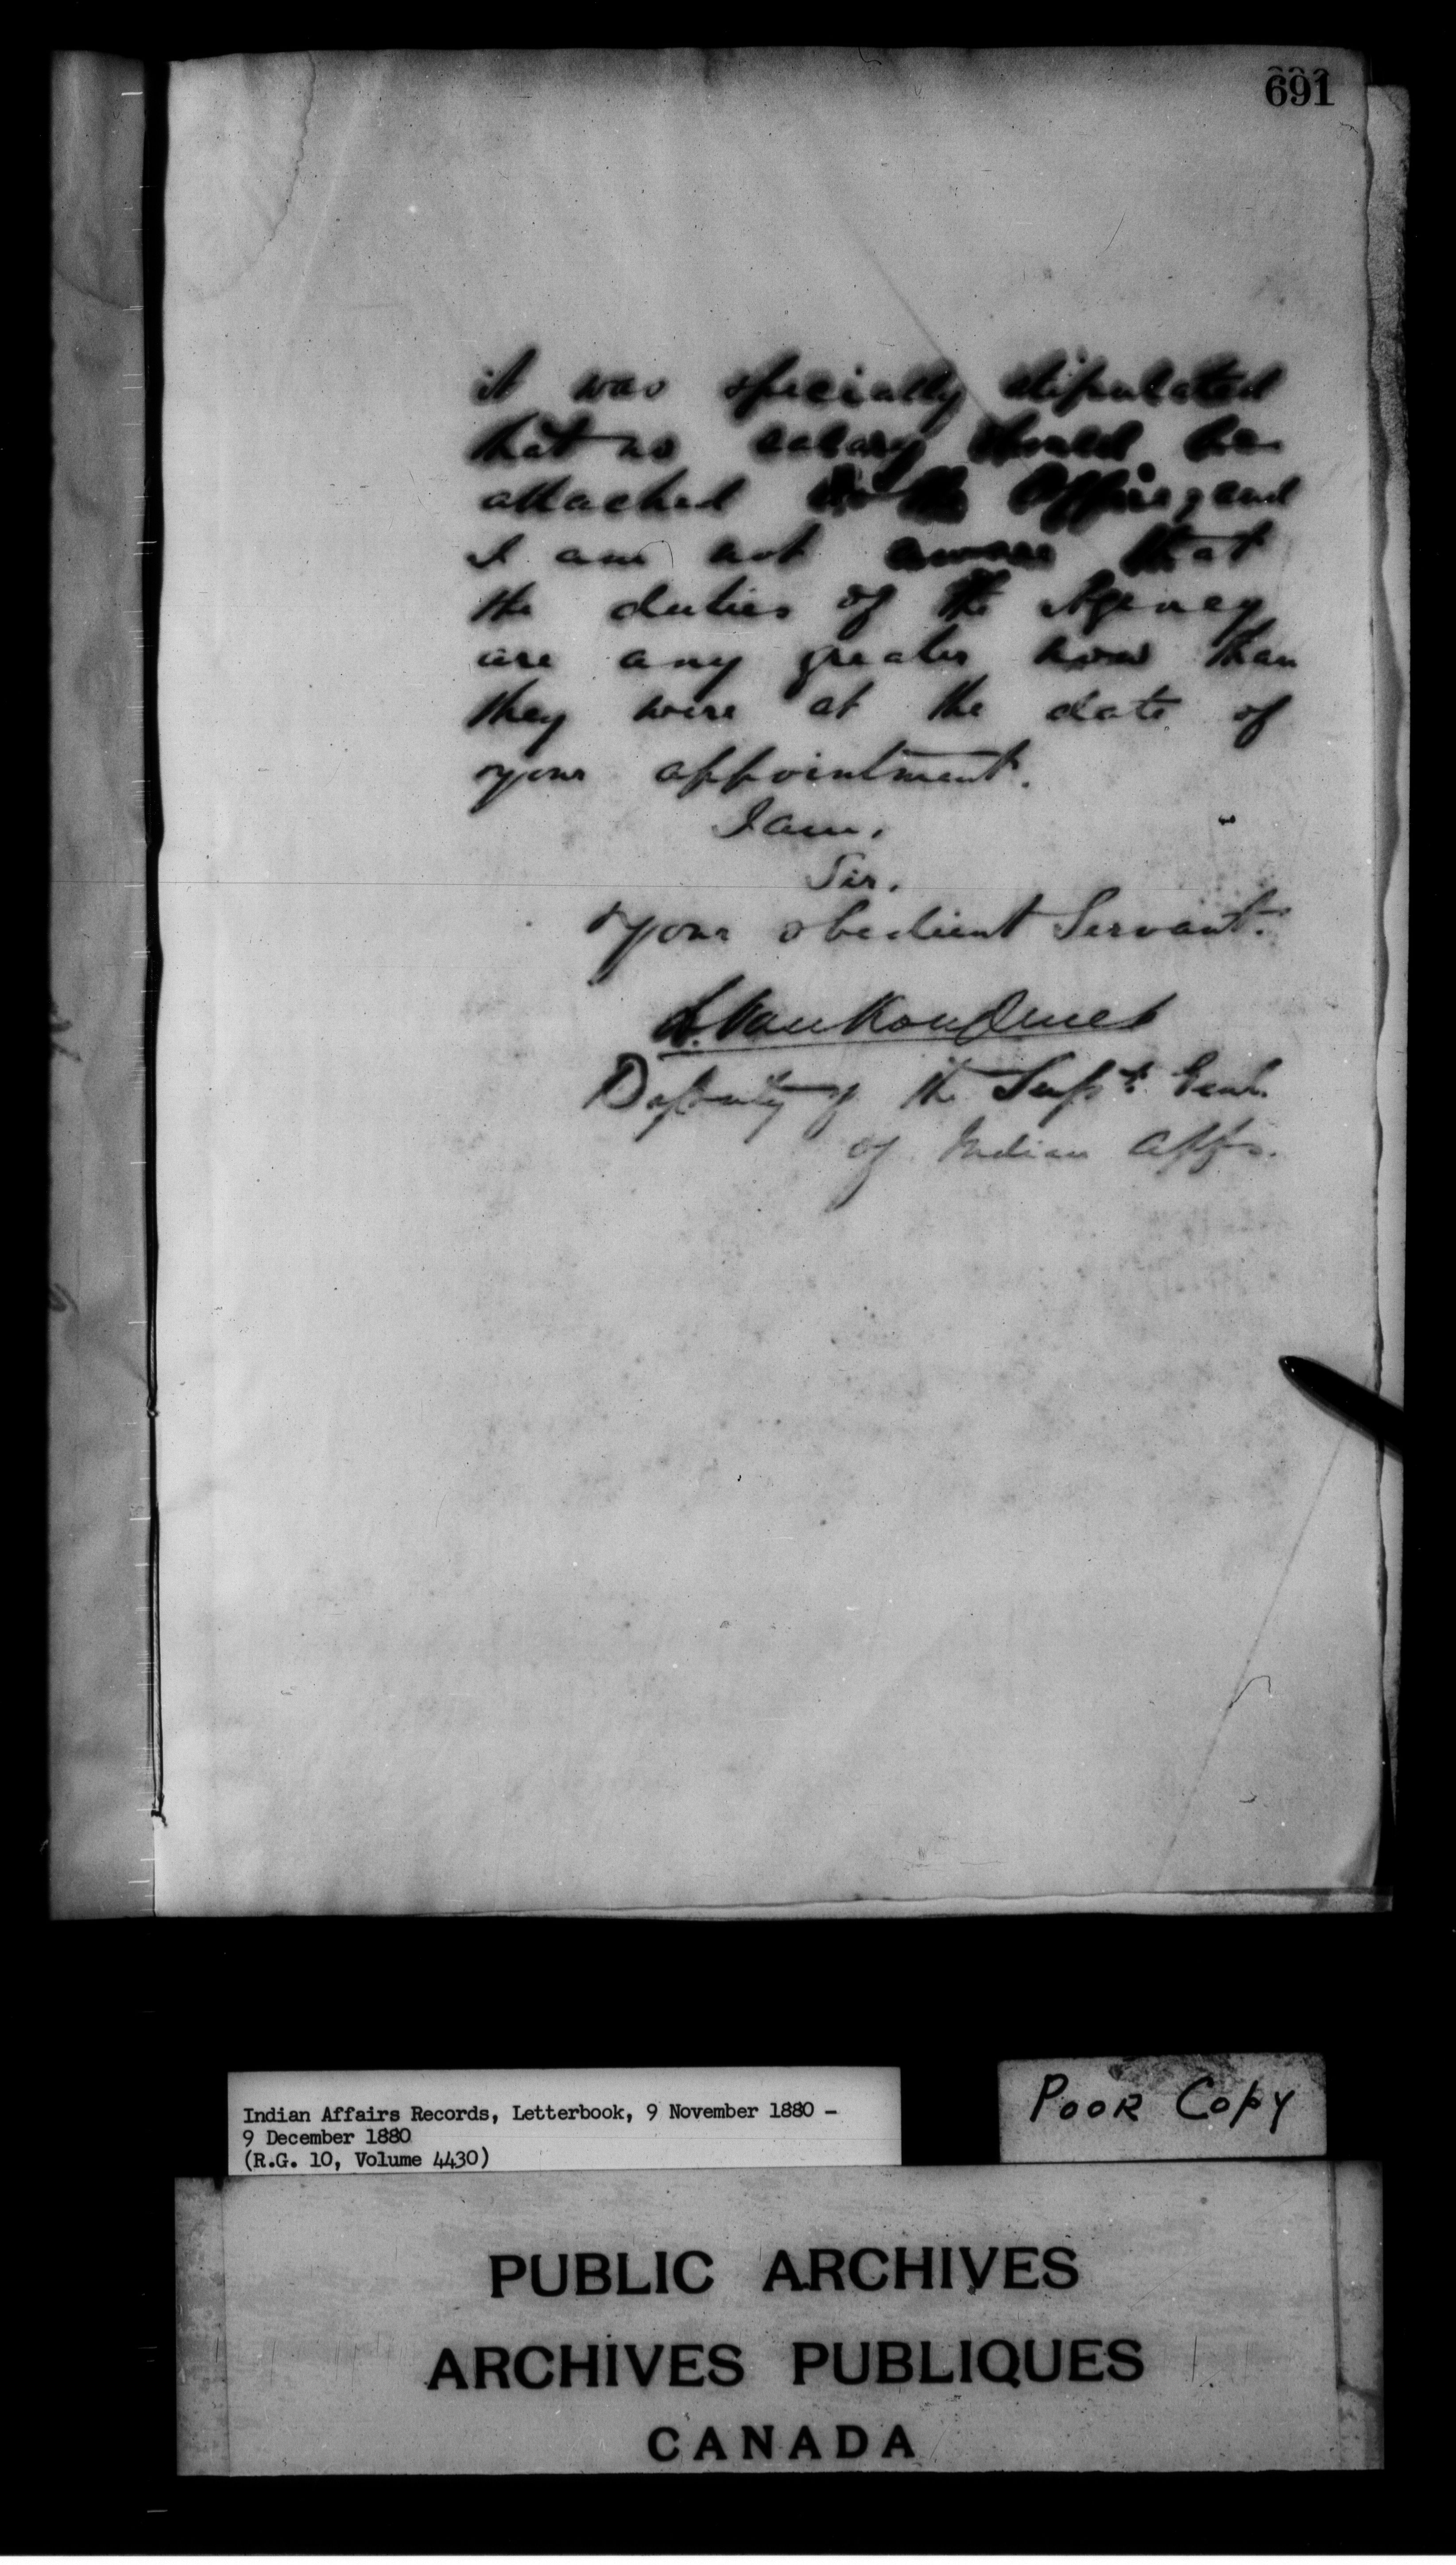 691
it was specially stipulated
that no salary should be
attached to the Office, and
I am not aware that
the duties of the Agency
are any greater now than
they were at the date of
your appointment.
I am,
Sir,
Your obedient Servant.
L. VanKoughnet
Deputy of the Supt. Genl.
of Indian Affs.
Indian Affairs Records, Letterbook, 9 November 1880 -
9 December 1880
(R.G. 10, Volume 4430)
POOR COPY
PUBLIC ARCHIVES
ARCHIVES PUBLIQUES
CANADA